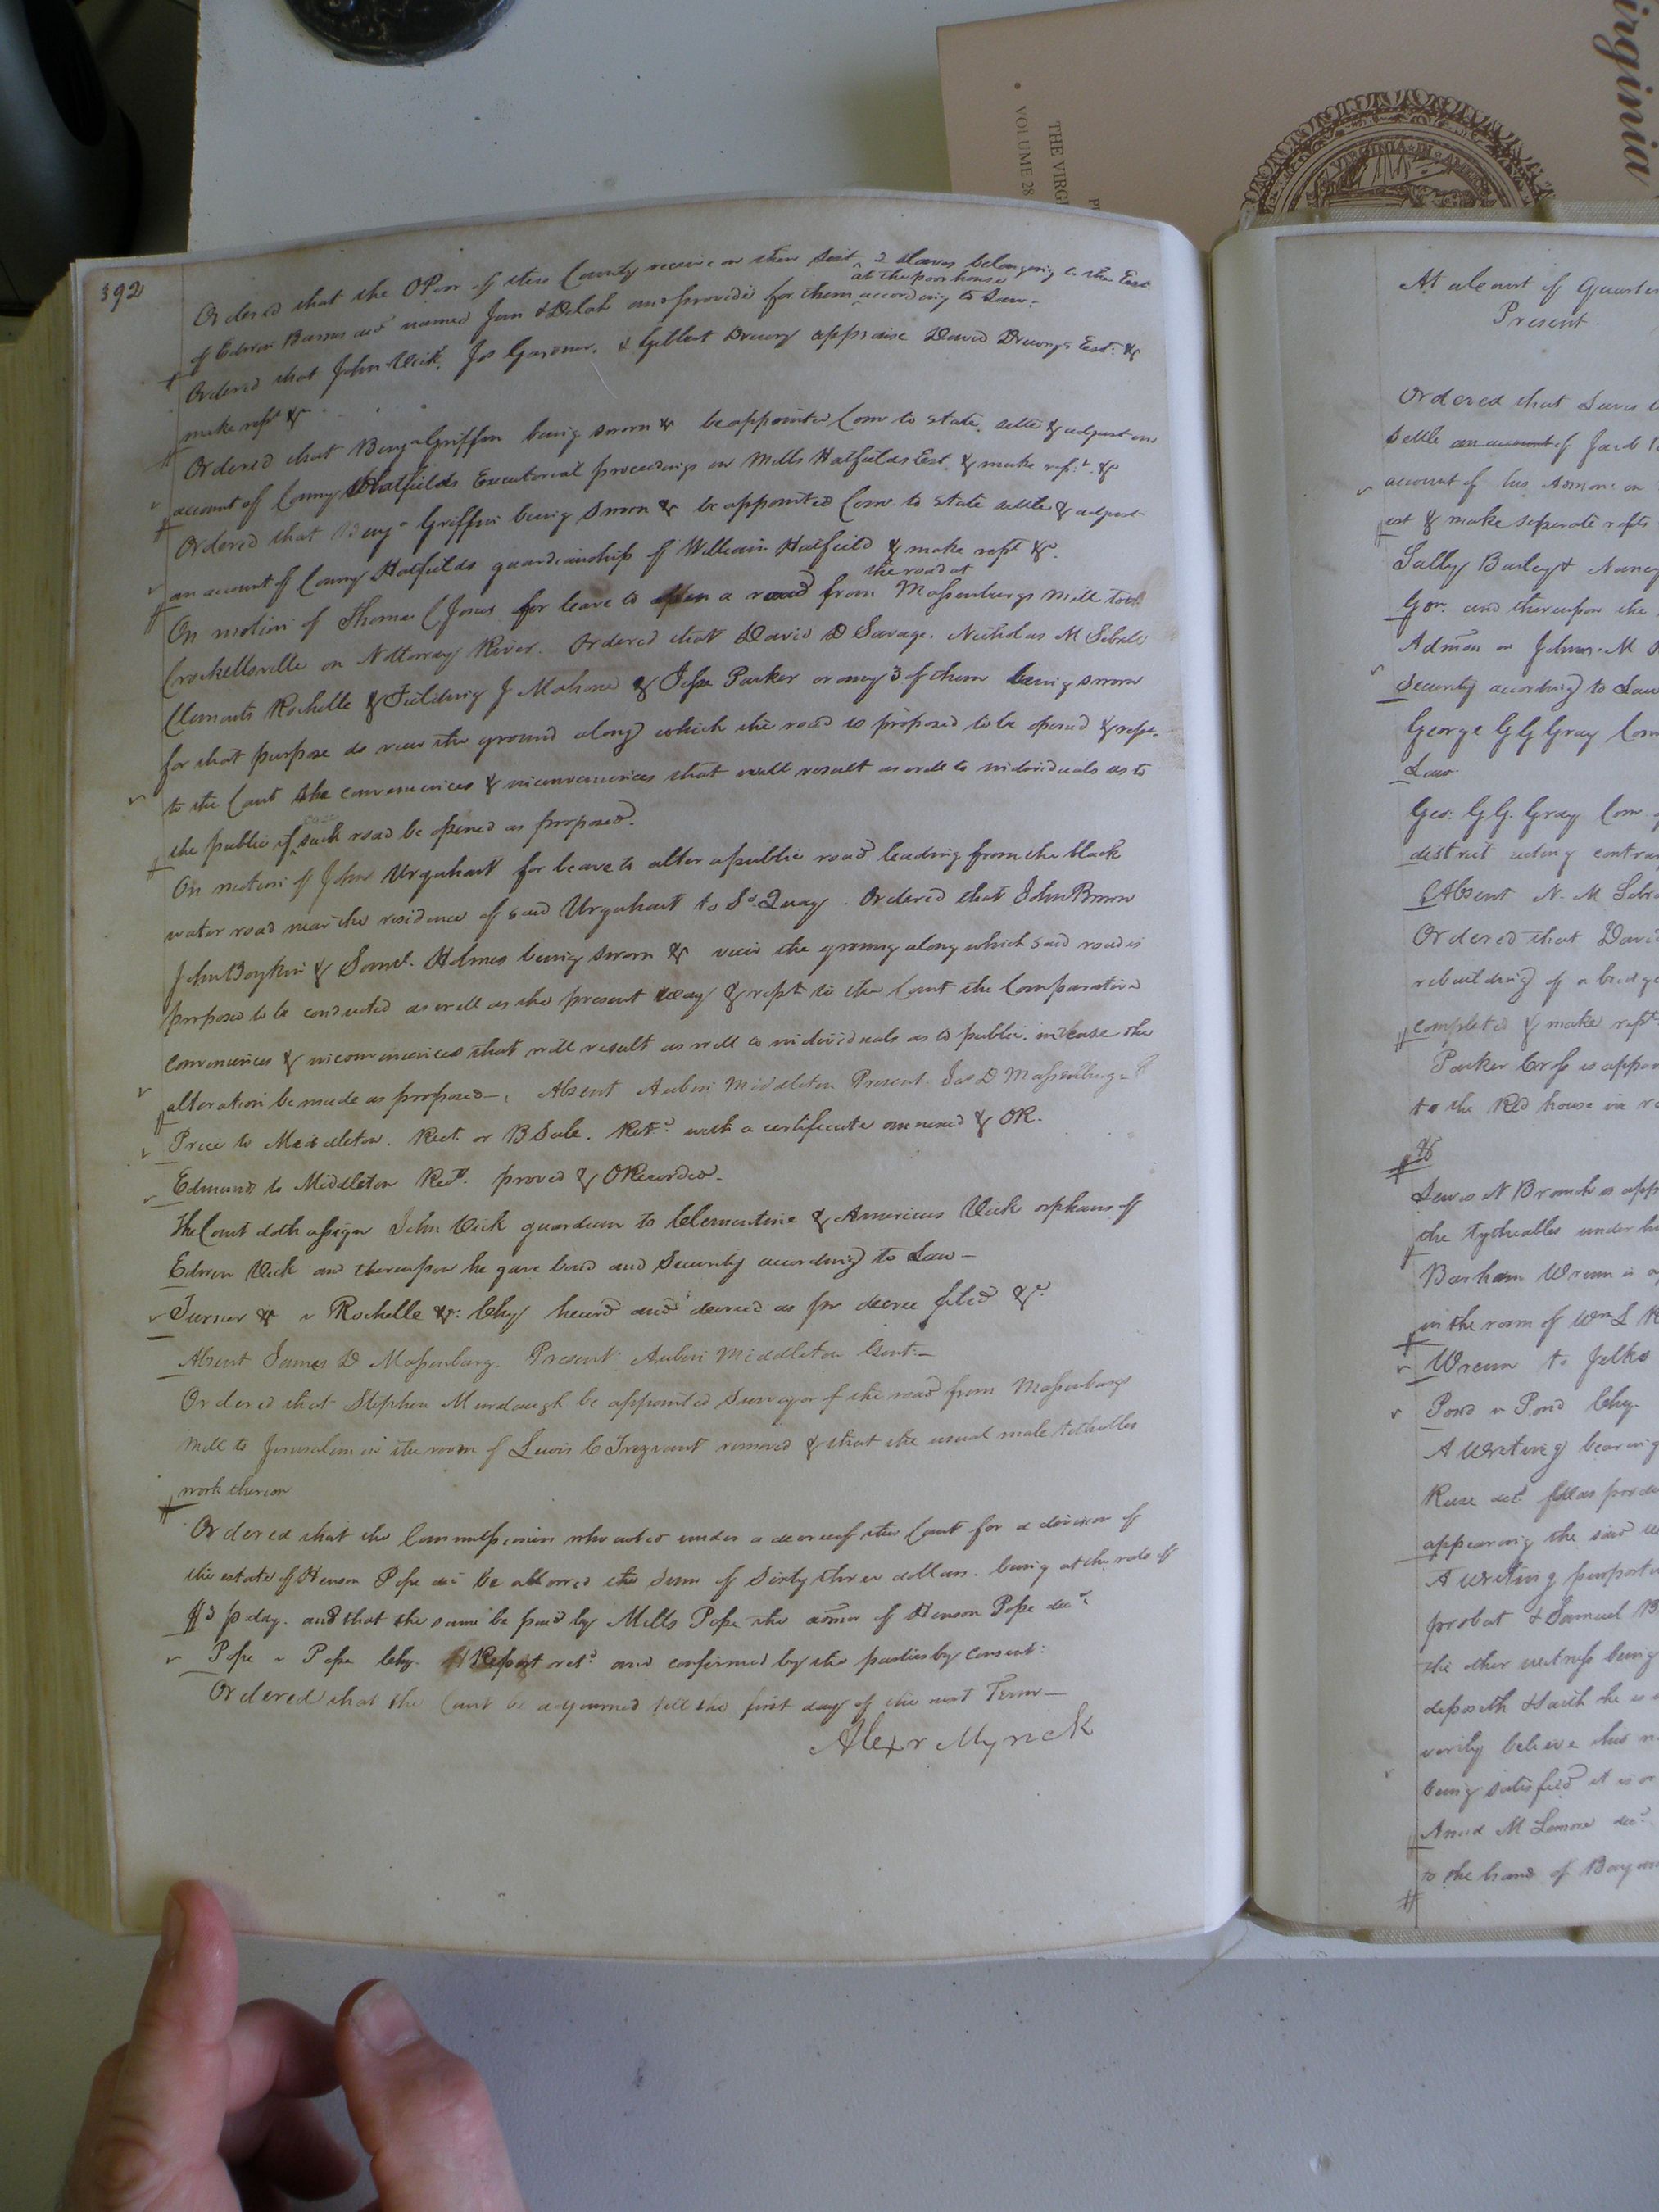 irginia
THE VIRGI
VOLUME 28
VIRGINIA IN
392
Ordered that the OPoor of this County receive on their list 2 slaves belonging to the Est
at the poor house
of Edwin Barnes decd named Jim & Delah and provide for them according to Law.
Ordered that John Vick, Jos Gardner, & Gilbert Drewry appraise David Drewrys Est. &
make rept &c
Ordered that Benja Griffin being sworn &c be appointed Com to state, settle & adjust an
account of Conny Hatfields Executorial proceedings on Mills Hatfields Est. & make rept. &c
Ordered that Benja Griffin being sworn &c be appointed Com to state settle & adjust
an account of Conny Hatfields guardianship of William Hatfield & make rept &c.
the road at
On motion of Thomas C Jones for leave to open a road from Massenburgs Mill to
Crockettsville on Nottoway River. Ordered that David D Savage. Nicholas M Sebrell
Clements Rochelle & Fielding J Mahone & Jesse Parker or any 3 of them being sworn
for that purpose do view the ground along which the road is proposed to be opened & rept.
to the Court the conveniences & inconveniences that will result as well to individuals as to
the public if such road be opened as proposed.
On motion of John Urquhart for leave to alter a public road leading from the black
water road near the residence of said Urquhart to So. Quay. Ordered that John Brown
John Boykin & Saml. Holmes being sworn &c view the ground along which said road is
proposed to be conducted as well as the present way & rept to the Court the Comparative
conveniences & inconveniences that will result as well to individuals as to public. in case the
alteration be made as proposed—. Absent Aubin Middleton Present Jas D Massenburg
Price to Middleton. Rect. or B Sale. Retd. with a certificate annexed & OR.
Edmunds to Middleton Rect. proved & ORecorded.
The Court doth assign John Vick guardian to Clementine & Americus Vick orphans of
Edwin Vick and thereupon he gave bond and Security according to Law—
Turner &c v Rochelle &c. Chy heard and decreed as pr decree filed &c.
Absent James D Massenburg. Present Aubin Middleton Gent.—
Ordered that Stephen Murdaugh be appointed Surveyor of the road from Massenburgs
Mill to Jerusalem in the room of Lewis C Trezvant removed & that the usual male tithables
work thereon
Ordered that the Commissioners who acted under a decree of this Court for a division of
the estate of Henson Pope decd be allowed the sum of Sixty three dollars. being at the rate of
$3 p day. and that the same be paid by Mills Pope the admor of Henson Pope decd
Pope v Pope Chy. Report retd. and confirmed by the parties by consent:
Ordered that the Court be adjourned till the first day of the next Term—
Alexr Myrick
At a Court of Quarter
Present
Ordered that
Settle of Jacob
account of his Admon on
est & make seperate repts
Sally Bailey & Nancy
Gdn. and thereupon the
Admon on M
Security according to Law
George G G Gray Com
Law
Geo. G G. Gray Com
district acting contra
Absent N. M Sebre
Ordered that Davi
rebuilding of a bridge
completed & make rept
Parker is appo
to the Red house in
Lewis N Branch is app
the tytheables under
Barham Wrenn is a
in the room of Wm L
Wrenn to Jelks
Pond v Pond Chy.
A writing bearing
decd
appearing the said
A writing purport
probat & Samuel B
the other witness being
deposeth & saith he is
verily believe this
being satisfied it is or
M Lemore decd.
to the hand of